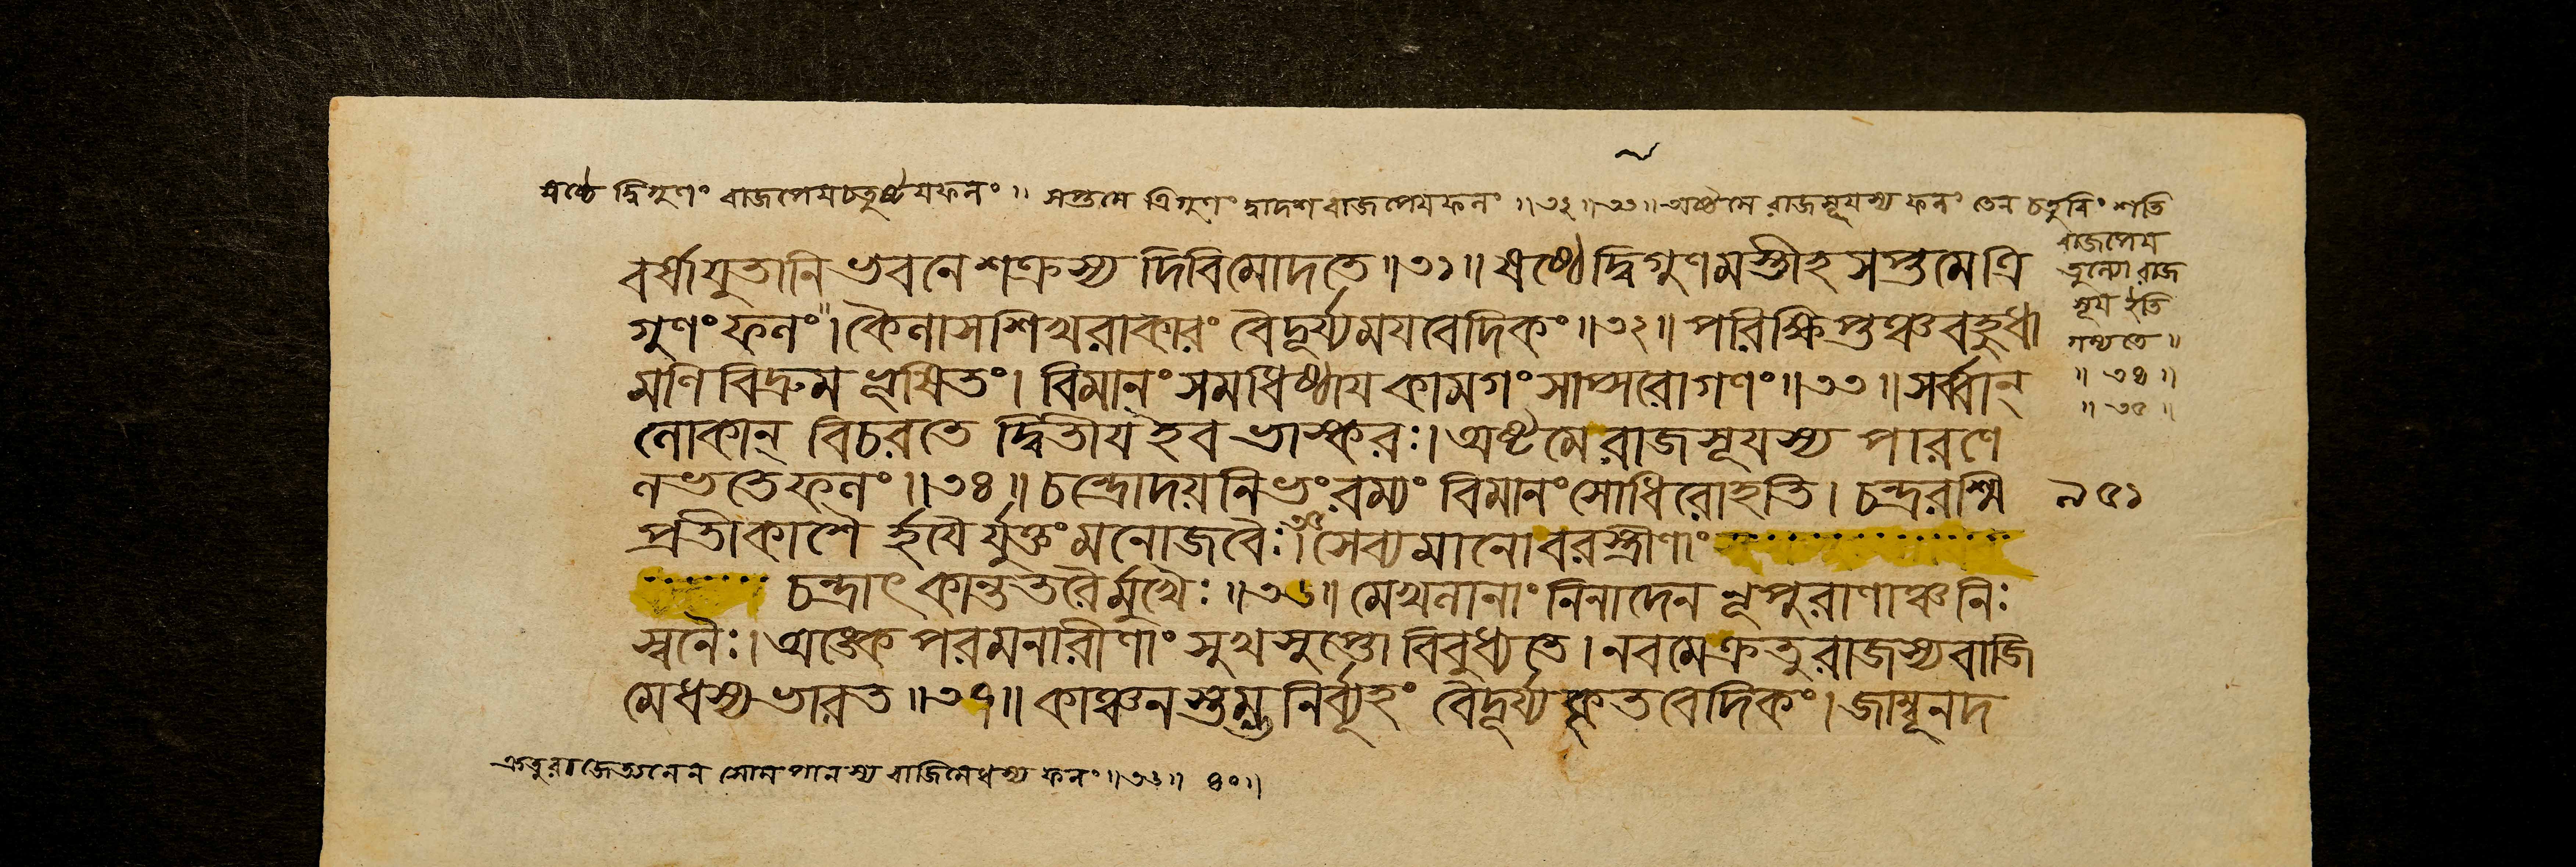 ষষ্ঠে দ্বিগুণং বাজপেয়চতুষ্টয়ফলং ॥ সপ্তমে ত্রিগুণং দ্বাদশবাজপেয়ফলং ॥৩২॥৩৩॥ অষ্টমে রাজসূয়স্য ফলং তেন চতুর্বিংশতি
বাজপেয়
তুল্যো রাজ
সূয় ইতি
গম্যতে ॥
॥ ৩৪ ॥
॥ ৩৫ ॥
বর্ষাযুতানি ভবনে শক্রস্য দিবিমোদতে ॥৩১॥ ষষ্ঠে দ্বিগুণমস্তীহ সপ্তমেত্রি
গুণং ফলং । কৈলাসশিখরাকারং বৈদূর্য্যময়বেদিকং ॥৩২॥ পরিক্ষিপ্তঞ্চবহুধা
মণিবিদ্রুমভূষিতং । বিমানং সমধিষ্ঠায় কামগং সাপ্সরোগণং ॥৩৩॥ সর্ব্বান্
লোকান্ বিচরতে দ্বিতীয় ইব ভাস্করঃ । অষ্টমে রাজসূয়স্য পারণে
লভতেফলং ॥৩৪॥ চন্দ্রোদয়নিভং রম্যং বিমানং সোধিরোহতি । চন্দ্ররশ্মি
৯৫১
প্রতীকাশৈ র্হয়ৈর্যুক্তং মনোজবৈঃ । সেব্যমানো বরস্ত্রীণাং
চন্দ্রাৎ কান্ততরৈর্মুখৈঃ ॥৩৬॥ মেখলানাং নিনাদেন নূপুরাণাঞ্চ নিঃ
স্বনৈঃ । অঙ্কে পরমনারীণাং সুখসুপ্তো বিবুধ্যতে । নবমে ক্রতুরাজস্য বাজি
মেধস্য ভারত ॥৩৭॥ কাঞ্চনস্তম্ভনির্ব্যূহং বৈদূর্য্যকৃতবেদিকং । জাম্বূনদ
ক্রতুরাজেত্যনেন সোমপানস্য বাজিমেধস্য ফলং ॥৩৬॥ ৪০॥